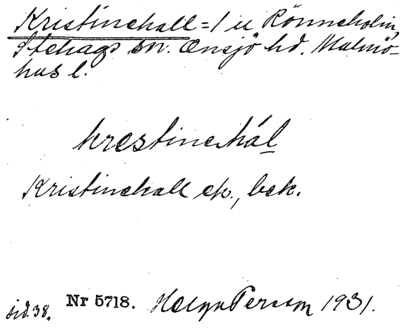 Kristinehall = 1 u Rönneholm,
Stehags sn. Onsjö hd. Malmö-
hus l.
krestinehál
Kristinehall ek., bek.
sid. 38. Nr 5718. Helga Persson 1931.